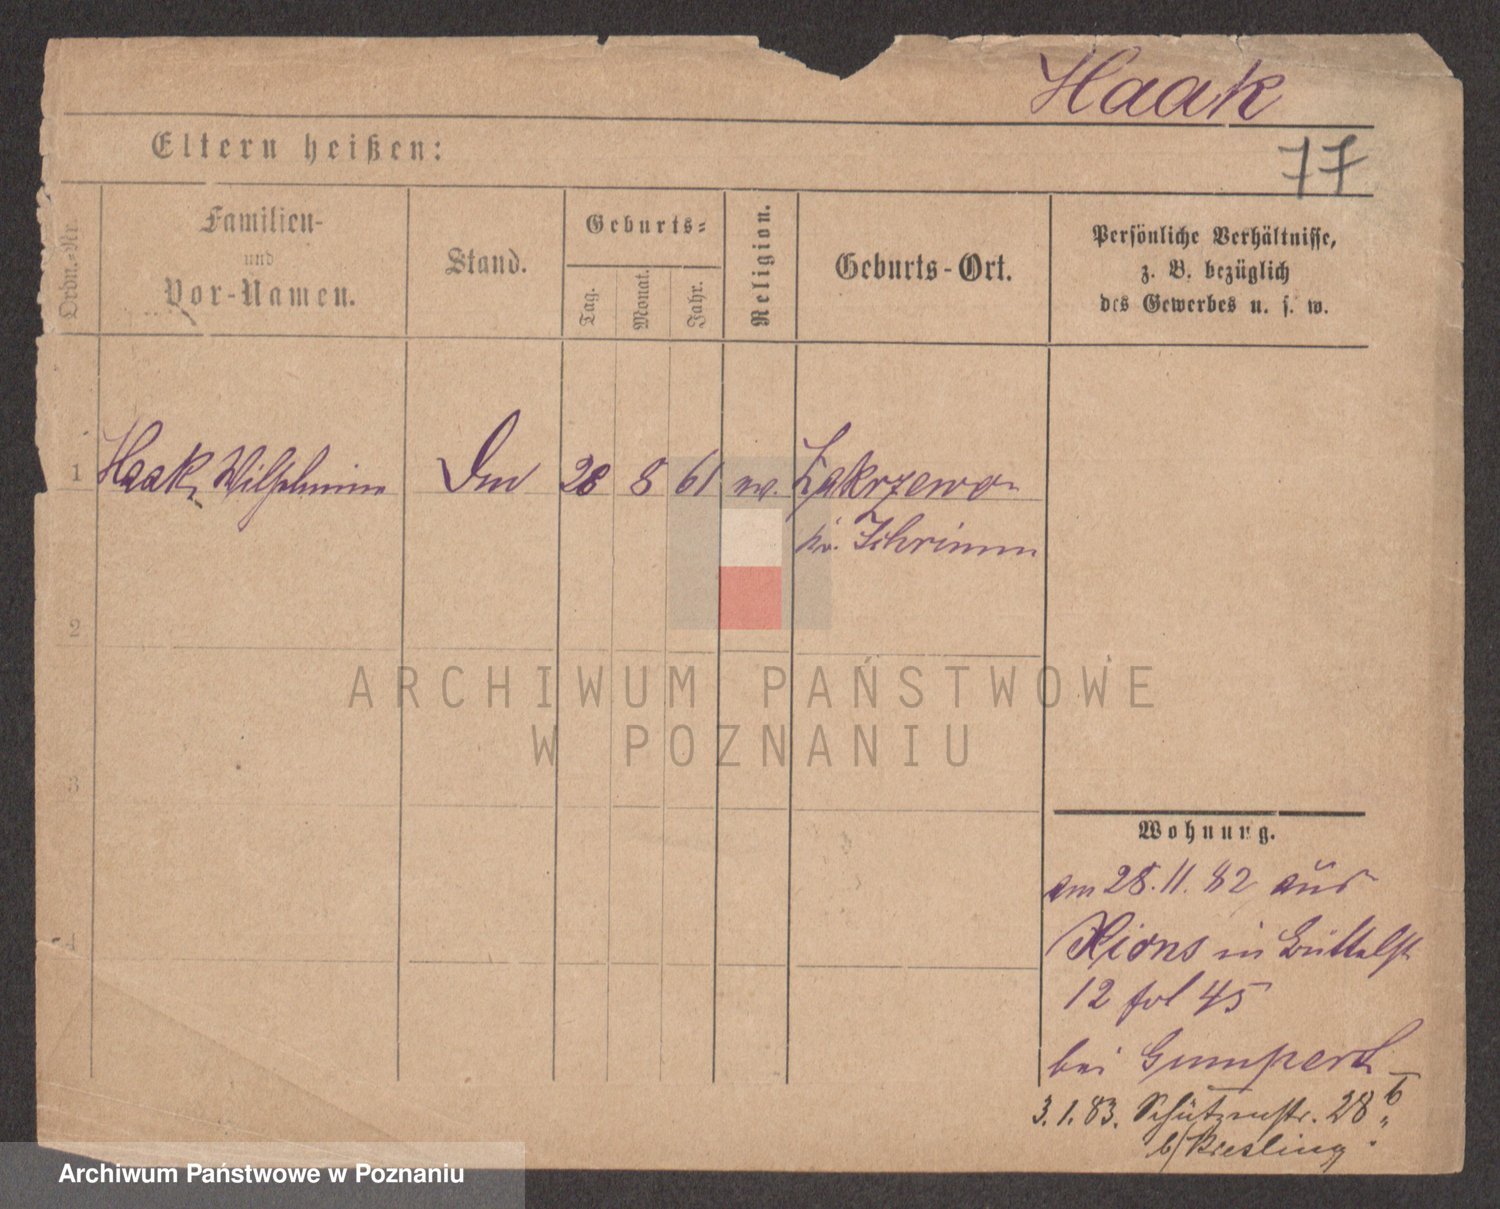 Haak
77
Eltern heißen:
Ordn.-Nr.
Familien-
und
Vor-Namen.
Stand.
Geburts-
Tag.
Monat.
Jahr.
Religion.
Geburts-Ort.
Persönliche Verhältnisse,
z. B. bezüglich
des Gewerbes u. s. w.
1 Haak, Wilhelmine 28 8 61 ev. Zakrzewo
Kr. Schrimm
2
3
4
ARCHIWUM PAŃSTWOWE
W POZNANIU
Wohnung.
am 28.11.82 aus
Xions in Büttelst
12 fol 45
bei Gumpert
3.1.83. Schützenstr. 28b
b/ Kiesling.
Archiwum Państwowe w Poznaniu